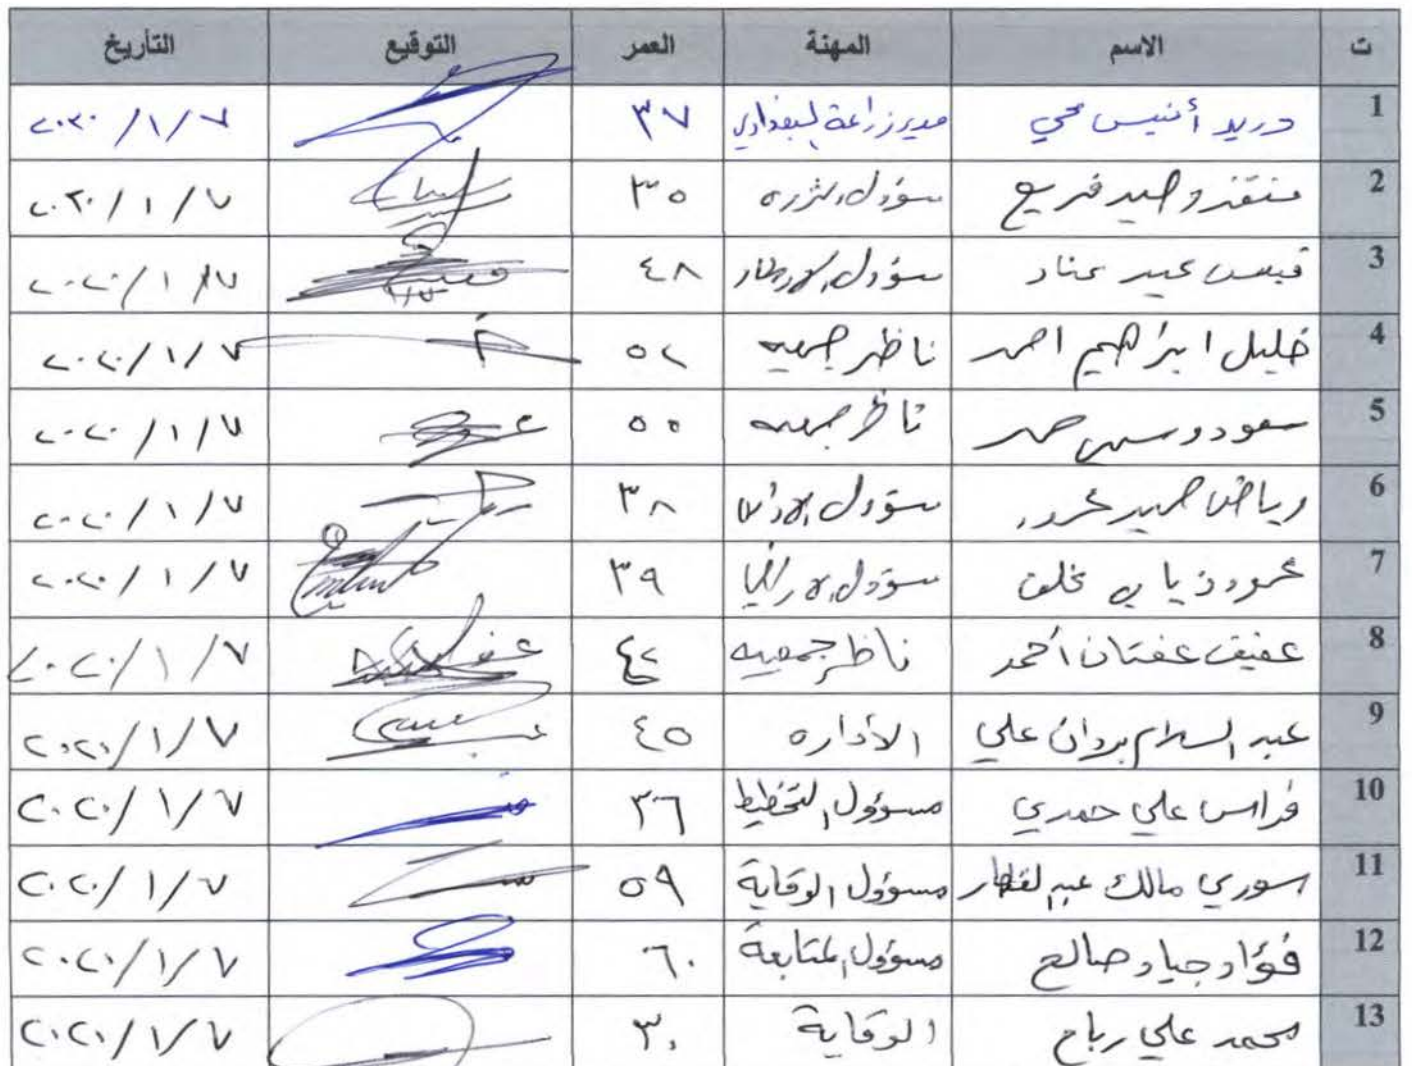 ت الاسم المهنة العمر التوقيع التأريخ
1 دريد أنيس محي مدير زراعة البغدادي ٣٧ ٢٠٢٠/١/٧
2 منقذ وحيد فريح مسؤول ٣٥ ٢٠٢٠/١/٧
3 قيس عبيد عناد مسؤول ٤٨ ٢٠٢٠/١/٧
4 خليل ابراهيم احمد ناظر جمعيه ٥٢ ٢٠٢٠/١/٧
5 سعود حمد ناظر جمعيه ٥٥ ٢٠٢٠/١/٧
6 رياض حميد مسؤول ٣٨ ٢٠٢٠/١/٧
7 ذياب خلف مسؤول الاراضي ٣٩ ٢٠٢٠/١/٧
8 عفيف عفتان أحمد ناظر جمعيه ٤٢ ٢٠٢٠/١/٧
9 عبد السلام بردان علي الأداره ٤٥ ٢٠٢٠/١/٧
10 فراس علي حمدي مسؤول التخطيط ٣٦ ٢٠٢٠/١/٧
11 سوري مالك مسؤول الوقاية ٥٩ ٢٠٢٠/١/٧
12 فؤاد جياد صالح مسؤول المتابعة ٦٠ ٢٠٢٠/١/٧
13 محمد علي رباح الوقاية ٣٠ ٢٠٢٠/١/٧